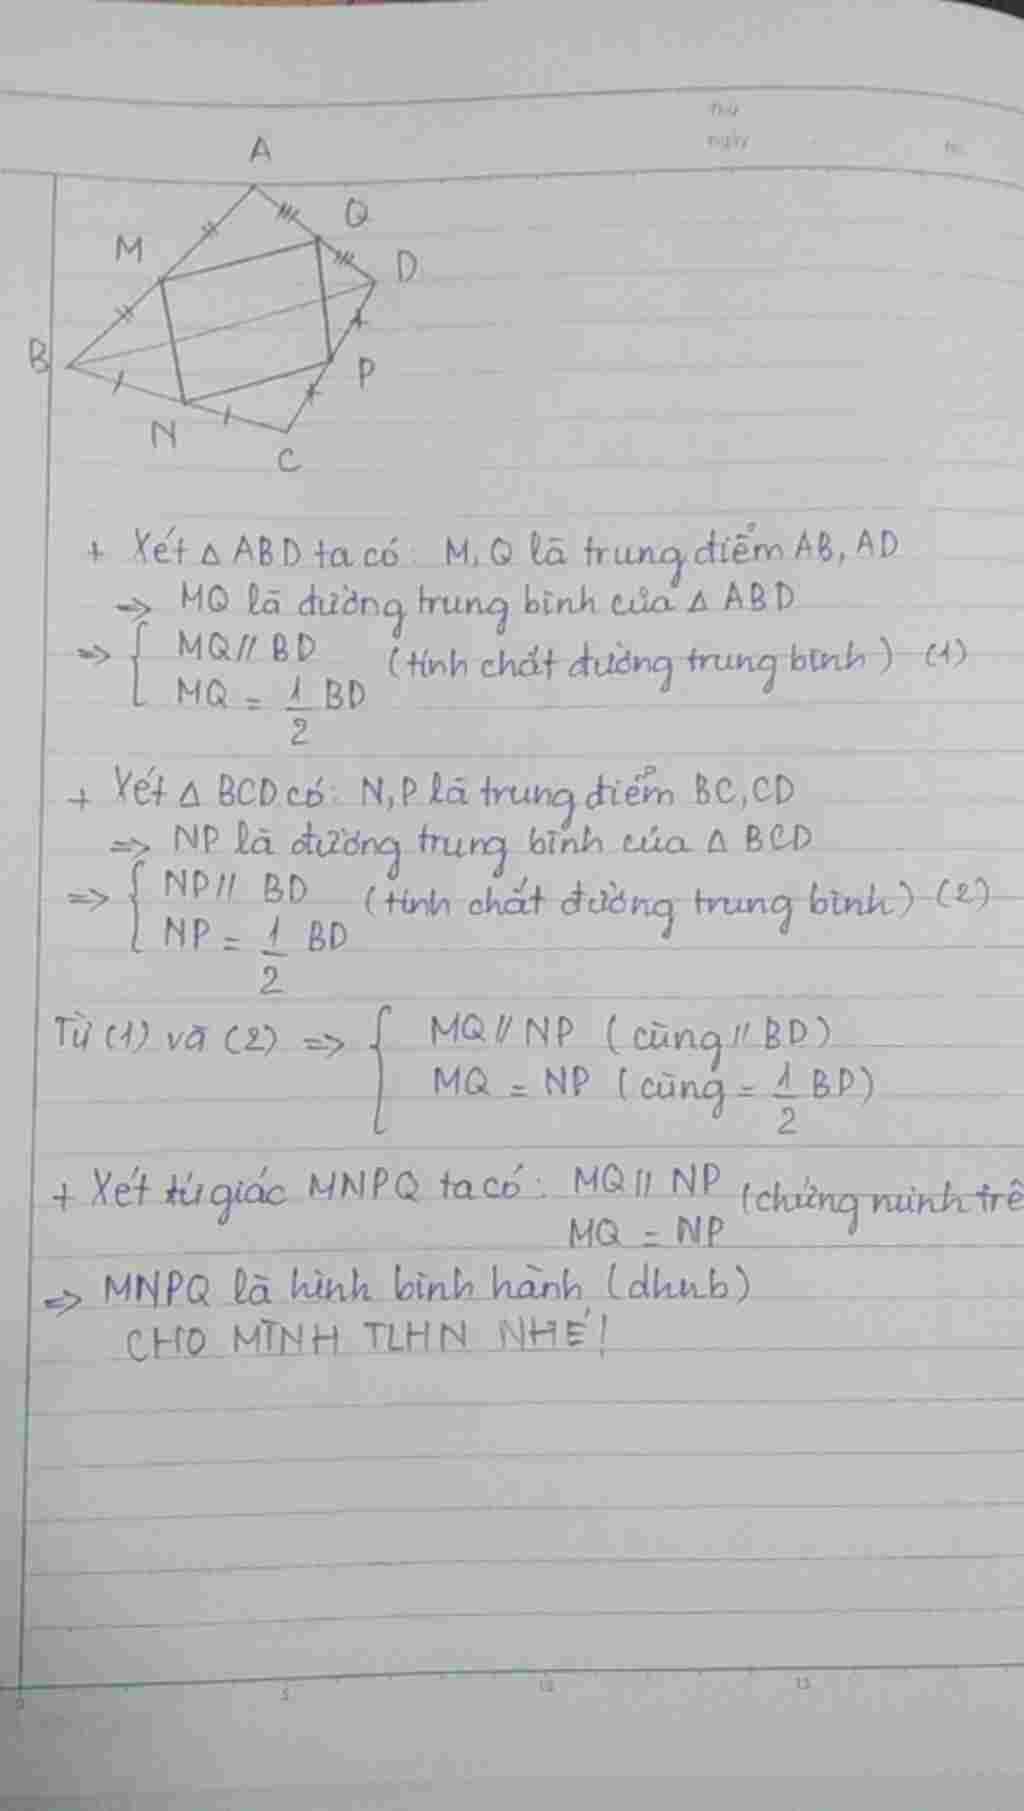 Thứ
Ngày
No.
A
Q
M
D
B
P
N
C
+ Xét △ ABD ta có: M, Q là trung điểm AB, AD
=> MQ là đường trung bình của △ ABD
=> { MQ // BD (tính chất đường trung bình) (1)
MQ = 1/2 BD
+ Xét △ BCD có: N, P là trung điểm BC, CD
=> NP là đường trung bình của △ BCD
=> { NP // BD (tính chất đường trung bình) (2)
NP = 1/2 BD
Từ (1) và (2) => { MQ // NP (cùng // BD)
MQ = NP (cùng = 1/2 BD)
+ Xét tứ giác MNPQ ta có: MQ // NP (chứng minh trê
MQ = NP
=> MNPQ là hình bình hành (dhnb)
CHO MÌNH TLHN NHÉ!
5
10
15